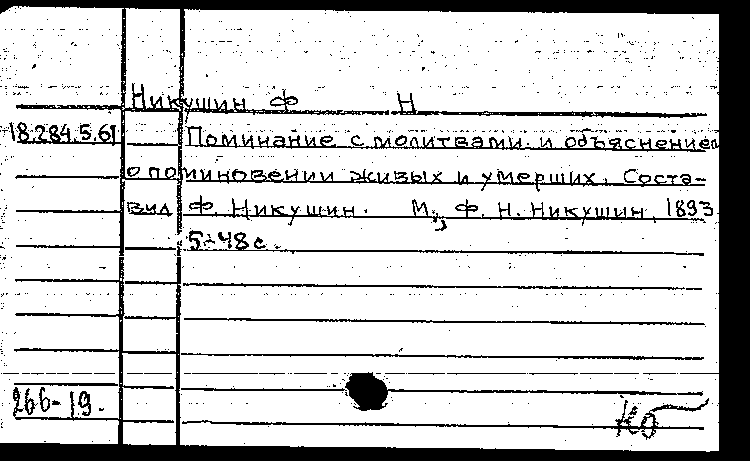 Никушин Ф Н
18.284.5.61 Поминание с молитвами и объяснением
о поминовении живых и умерших. Соста-
вил Ф. Никушин. М., Ф. Н. Никушин, 1893
5-48 с.
266-19.